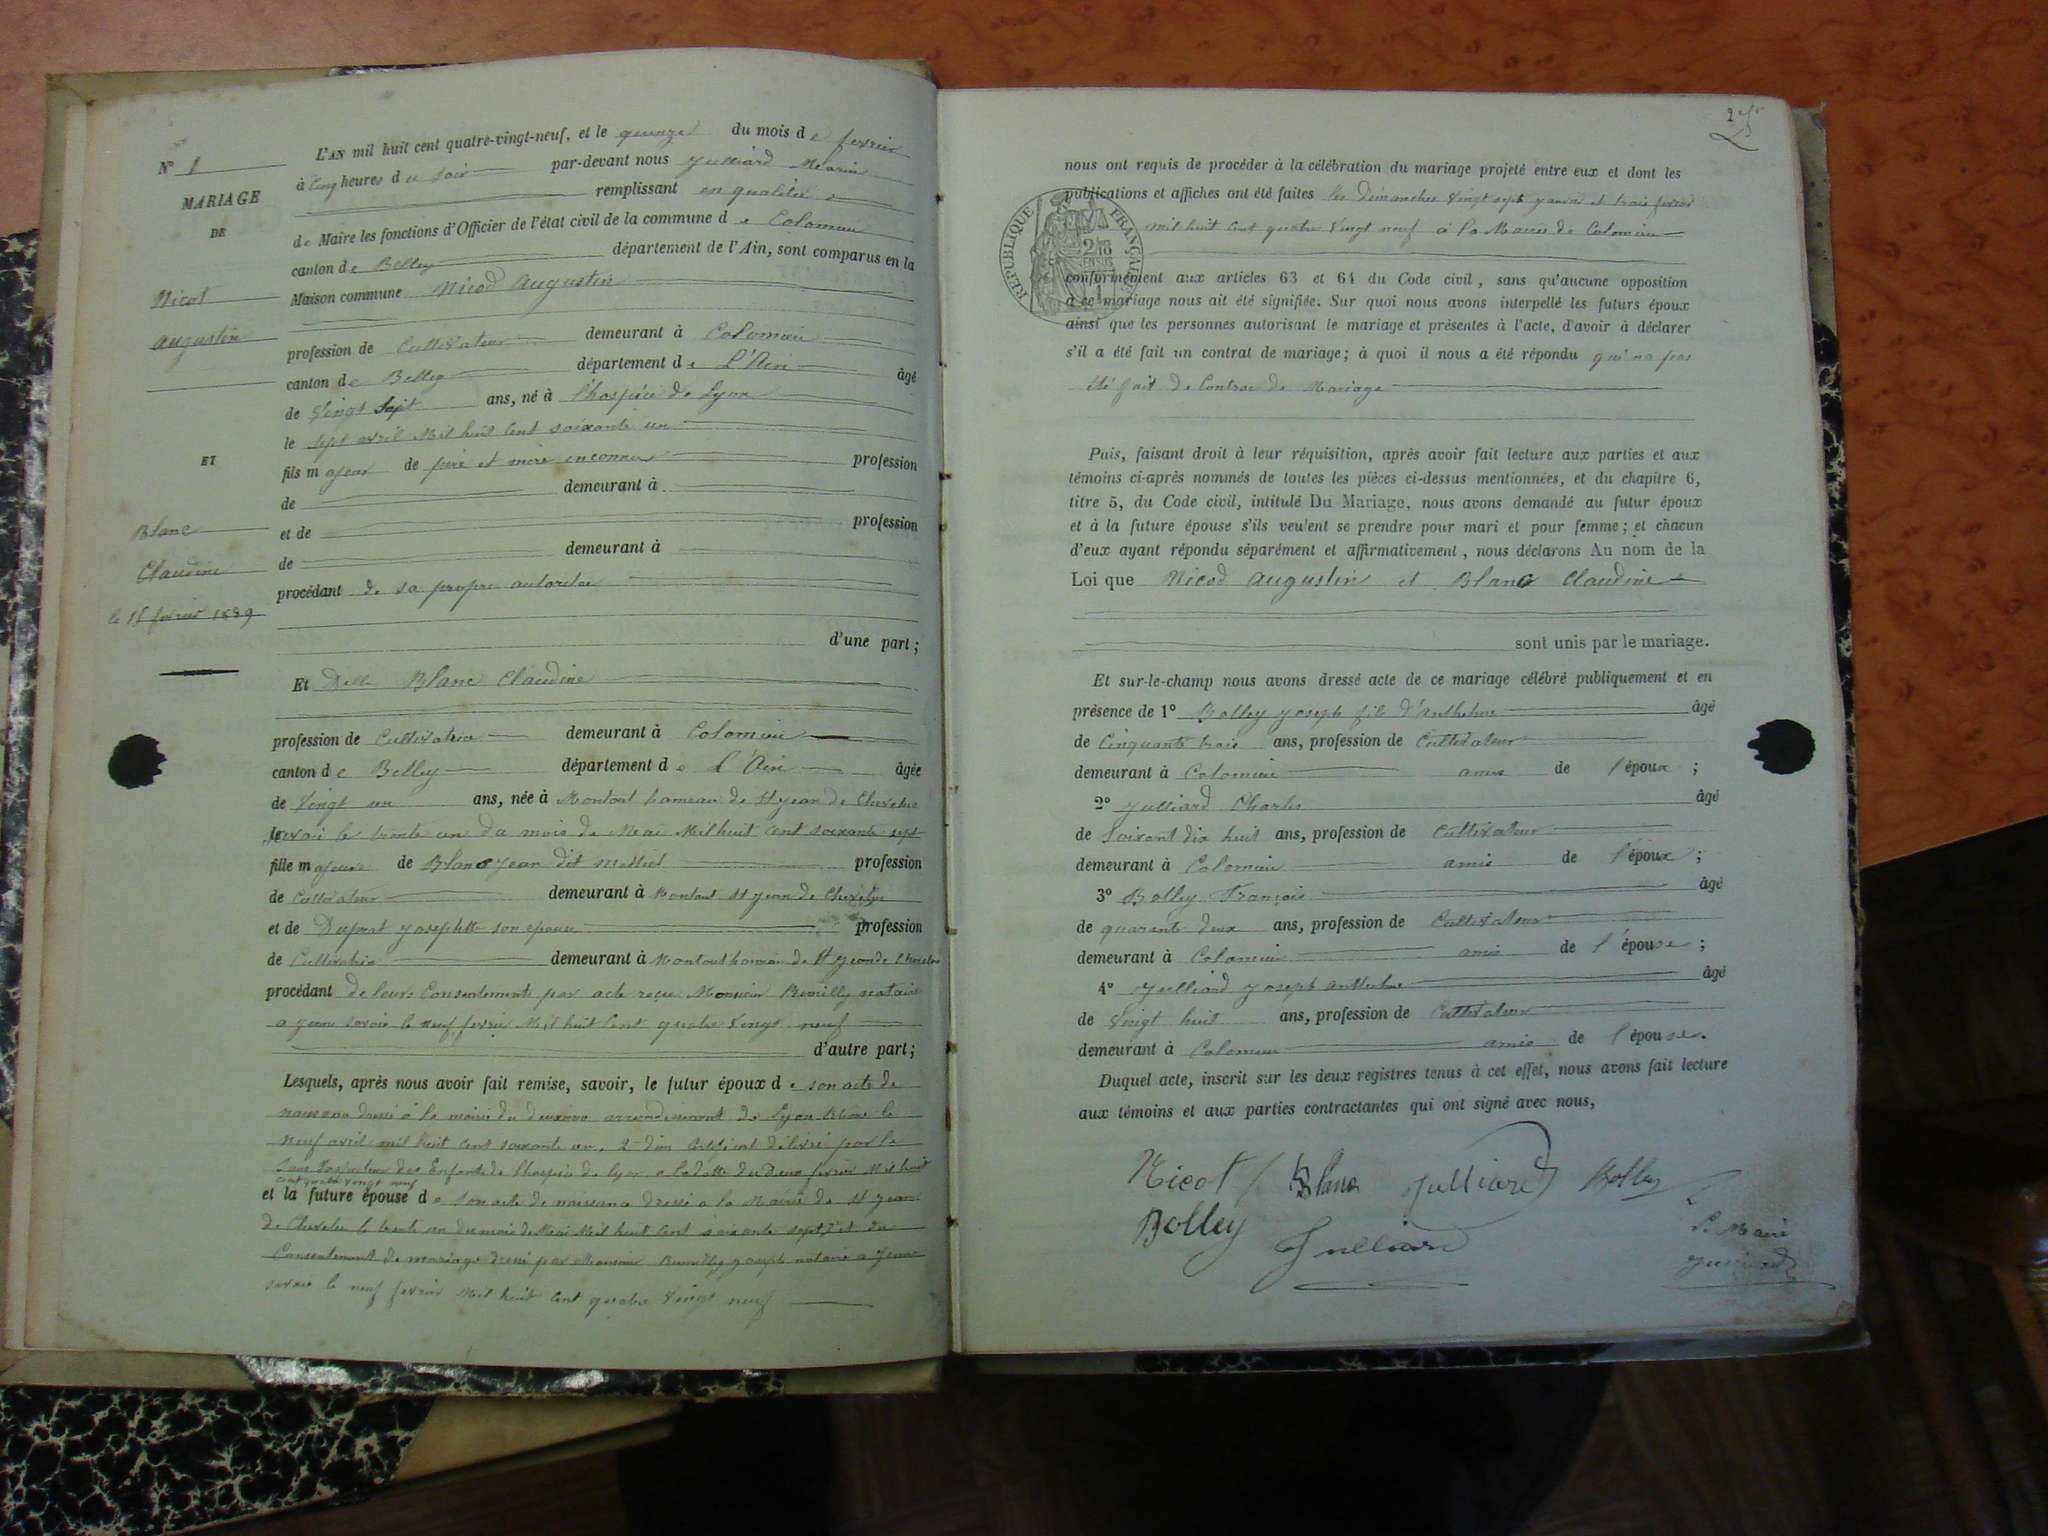 N° 1
MARIAGE
DE
Nicot
augustin
ET
Blanc
Claudine
le 15 fevrier 1889
L'AN mil huit cent quatre-vingt-neuf, et le quinze du mois de fevrier
à cinq heures du soir par-devant nous Julliard Marin
remplissant en qualitée
de Maire les fonctions d'Officier de l'état civil de la commune de Colomieu
canton de Belley département de l'Ain, sont comparus en la
Maison commune Nicod augustin
profession de Cultivateur demeurant à Colomieu
canton de Belley département de L'Ain âgé
de Vingt Sept ans, né à l'hospice de Lyon
le sept avril Mil huit Cent soixante un
fils majeur de père et mère inconnus profession
de demeurant à
et de profession
de demeurant à
procédant de sa propre autoritee
d'une part;
Et Delle Blanc Claudine
profession de Cultivatrice demeurant à Colomieu
canton de Belley département de L'Ain âgée
de Vingt un ans, née à Montout hameau de St jean de Chevelu
le trente un du mois de Mai Mil huit Cent soixante sept
fille majeure de Blanc jean dit profession
de Cultivateur demeurant à Montout St jean de Chevelu
et de Duprat josephte son epouse profession
de Cultivatrice demeurant à Montout hameau de St jean de Chevelu
procédant de leurs Consentements par acte reçu Monsieur Rumilly notaire
a yenne savoie le neuf fevrier Mil huit Cent quatre Vingt neuf
d'autre part;
Lesquels, après nous avoir fait remise, savoir, le futur époux de son acte de
naissance dressé à la mairie du deuxieme arrondissement de Lyon Rhône le
neuf avril mil huit Cent soixante un, 2° d'un Certificat délivré par le
Sous Inspecteur des Enfants de l'hospice de Lyon a la datte du Deux fevrier Mil huit
Cent quatre Vingt neuf
et la future épouse de son acte de naissance dressé a la Mairie de St jean
de Chevelu le trente un du mois de Mai Mil huit Cent soixante sept, 2° et du
Consentement de mariage dressé par Monsieur Rumilly joseph notaire a Yenne
savoie le neuf fevrier Mil huit Cent quatre Vingt neuf
nous ont requis de procéder à la célébration du mariage projeté entre eux et dont les
publications et affiches ont été faites les dimanches Vingt sept janvier et trois fevrier
mil huit Cent quatre Vingt neuf à la Mairie de Colomieu
RÉPUBLIQUE FRANÇAISE
conformément aux articles 63 et 64 du Code civil, sans qu'aucune opposition
à ce mariage nous ait été signifiée. Sur quoi nous avons interpellé les futurs époux
ainsi que les personnes autorisant le mariage et présentes à l'acte, d'avoir à déclarer
s'il a été fait un contrat de mariage; à quoi il nous a été répondu qu'na pas
été fait de Contrac de Mariage
Puis, faisant droit à leur réquisition, après avoir fait lecture aux parties et aux
témoins ci-après nommés de toutes les pièces ci-dessus mentionnées, et du chapitre 6,
titre 5, du Code civil, intitulé Du Mariage, nous avons demandé au futur époux
et à la future épouse s'ils veulent se prendre pour mari et pour femme; et chacun
d'eux ayant répondu séparément et affirmativement, nous déclarons Au nom de la
Loi que Nicod augustin et Blanc Claudine
sont unis par le mariage.
Et sur-le-champ nous avons dressé acte de ce mariage célébré publiquement et en
présence de 1° Bolley joseph fils d'Anthelme âgé
de Cinquante trois ans, profession de Cultivateur
demeurant à Colomieu amis de l'époux ;
2° Julliard Charles âgé
de Soixant dix huit ans, profession de Cultivateur
demeurant à Colomieu amis de l'époux ;
3° Bolley François âgé
de quarente deux ans, profession de Cultivateur
demeurant à Colomieu amis de l'épouse ;
4° Julliard joseph anthelme âgé
de Vingt huit ans, profession de Cultivateur
demeurant à Colomieu amis de l'épouse.
Duquel acte, inscrit sur les deux registres tenus à cet effet, nous avons fait lecture
aux témoins et aux parties contractantes qui ont signé avec nous,
Nicot Blanc Julliard Bolley
Bolley Julliard Le Maire
Julliard